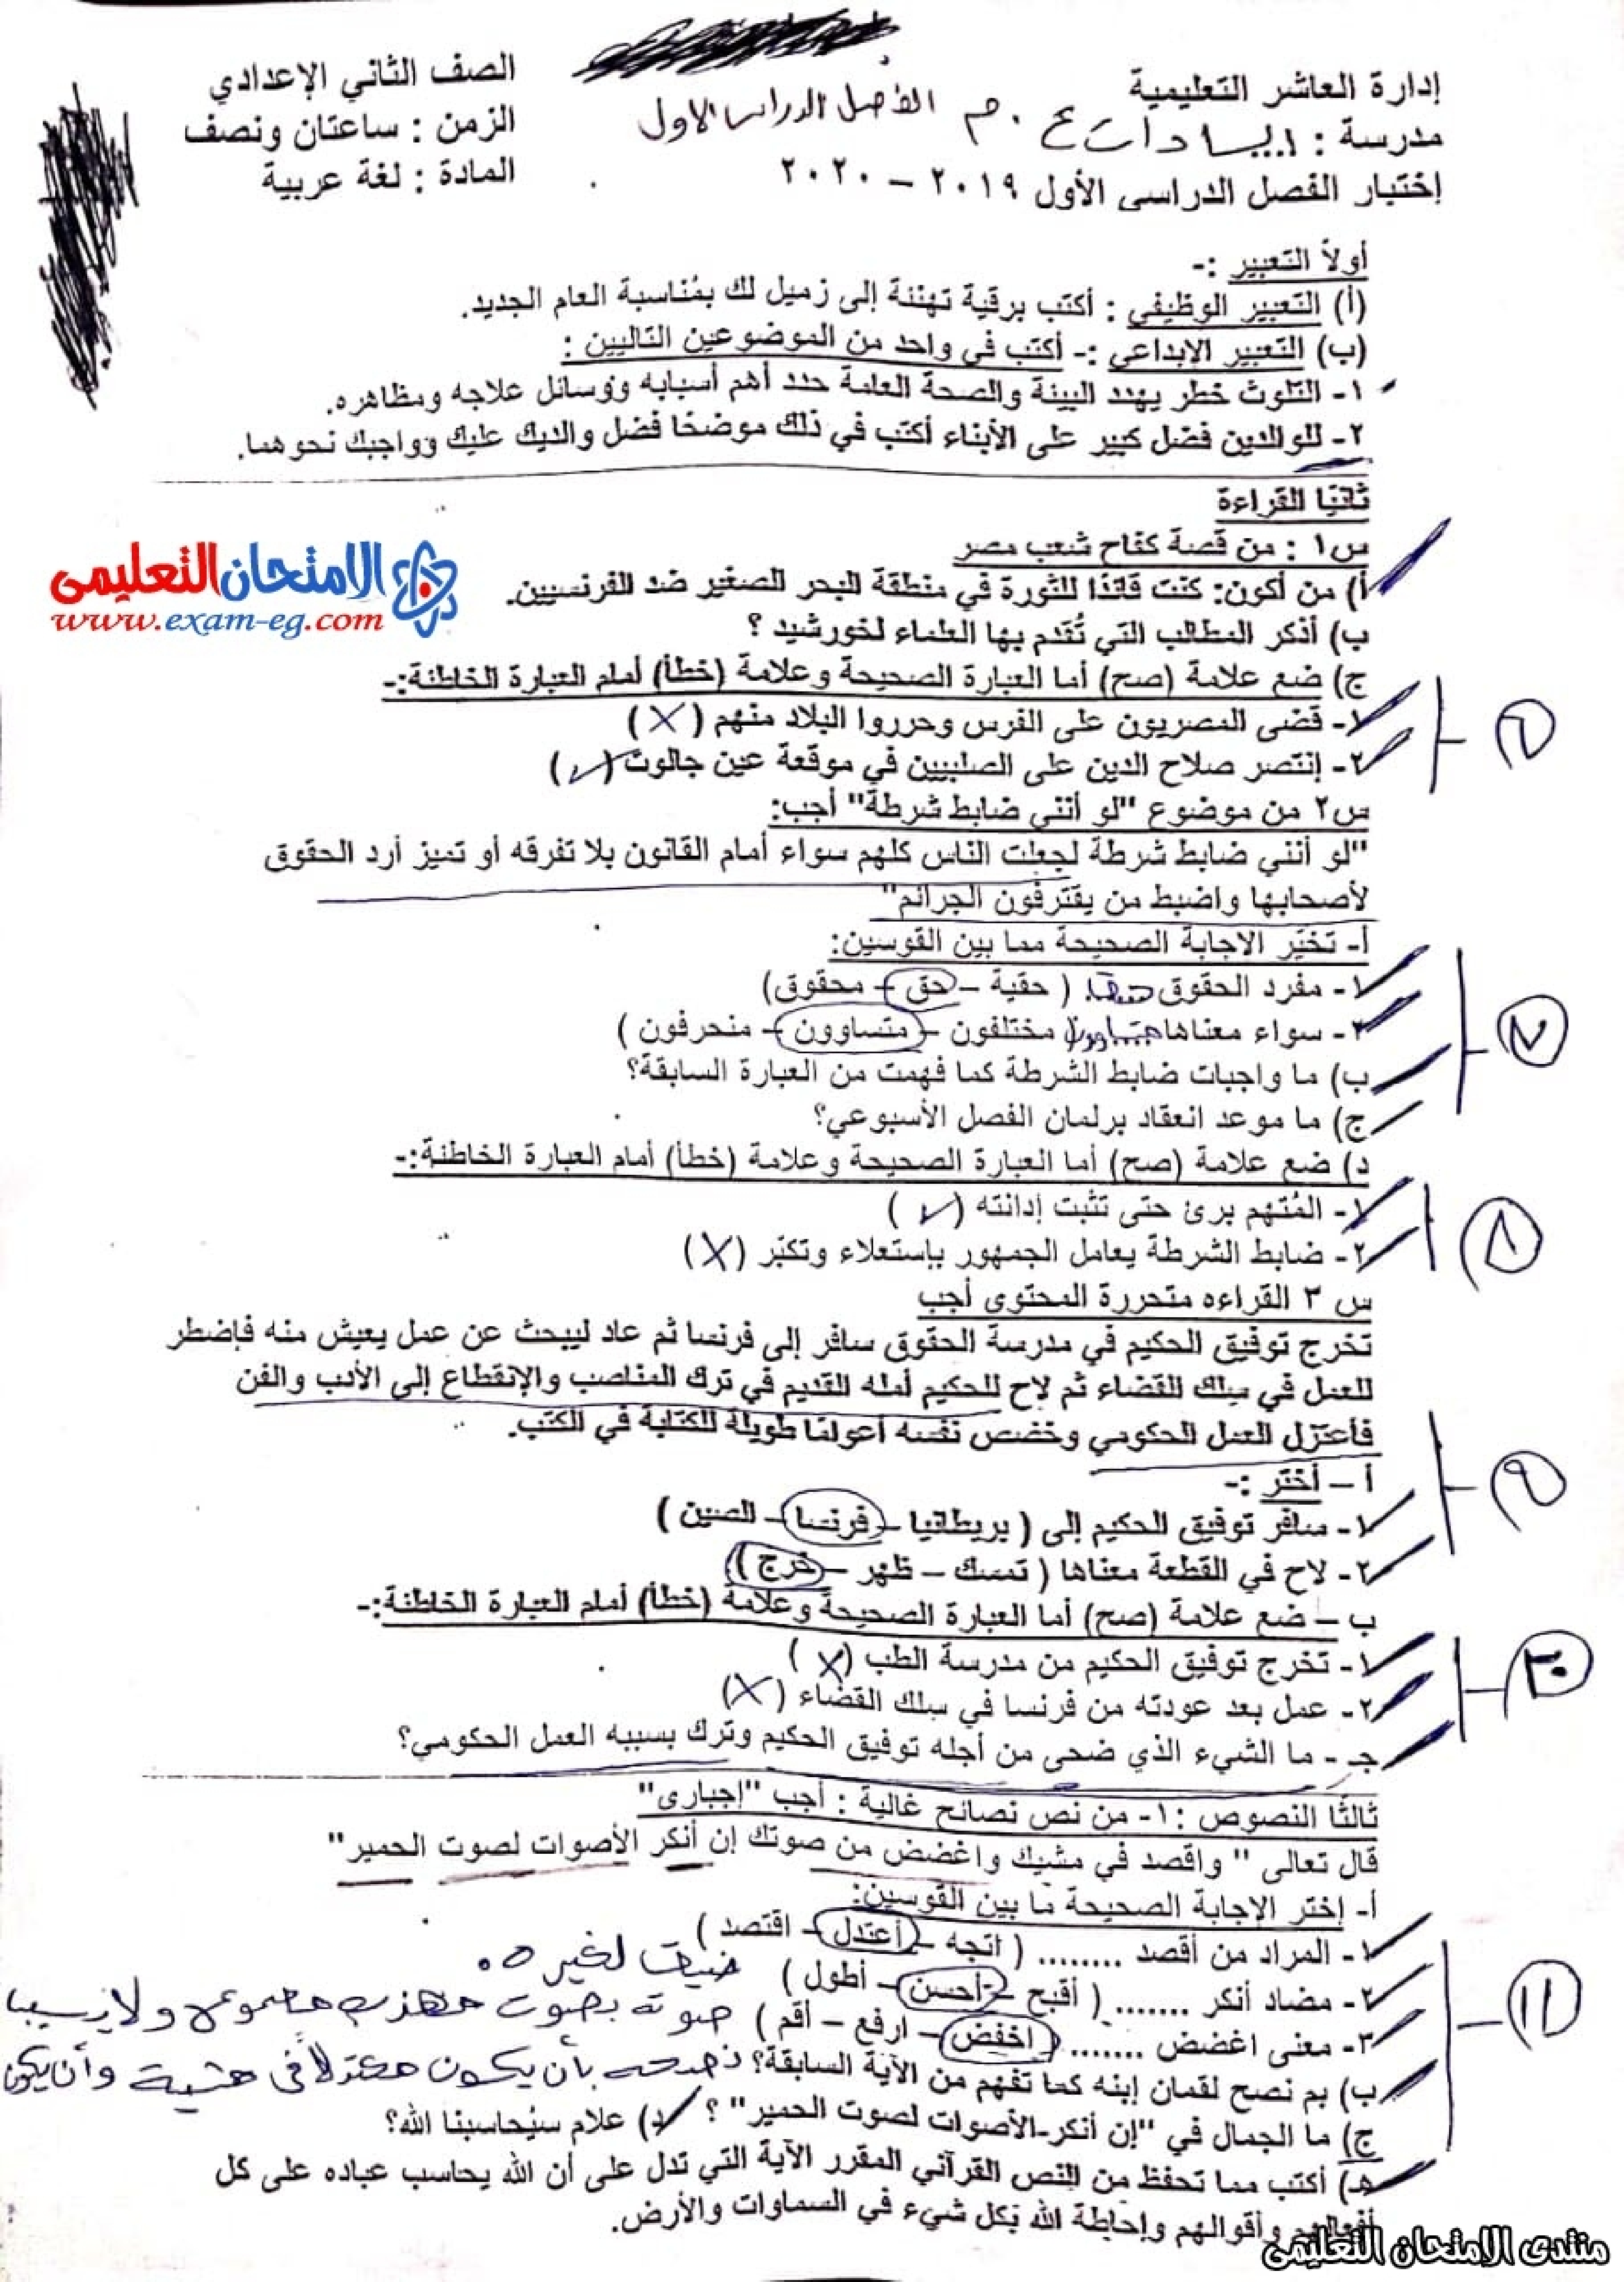 إدارة العاشر التعليمية
مدرسة : السادات ع . م الفصل الدراسى الاول
إختبار الفصل الدراسى الأول ٢٠١٩ – ٢٠٢٠
الصف الثاني الإعدادي
الزمن : ساعتان ونصف
المادة : لغة عربية
أولاً التعبير :-
(أ) التعبير الوظيفي : أكتب برقية تهنئة إلى زميل لك بمُناسبة العام الجديد.
(ب) التعبير الإبداعي :- أكتب في واحد من الموضوعين التاليين :
١- التلوث خطر يهدد البيئة والصحة العامة حدد أهم أسبابه ووسائل علاجه ومظاهره.
٢- للوالدين فضل كبير على الأبناء أكتب في ذلك موضحًا فضل والديك عليك وواجبك نحوهما.
ثانيًا القراءة
الامتحان التعليمى
www.exam-eg.com
س١ : من قصة كفاح شعب مصر
أ) من أكون: كنت قائدًا للثورة في منطقة البحر الصغير ضد الفرنسيين.
ب) أذكر المطالب التي تُقدم بها العلماء لخورشيد ؟
ج) ضع علامة (صح) أما العبارة الصحيحة وعلامة (خطأ) أمام العبارة الخاطئة:-
١- قضى المصريون على الفرس وحرروا البلاد منهم (X)
٢- إنتصر صلاح الدين على الصليبيين في موقعة عين جالوت (✓)
٦
س٢ من موضوع "لو أنني ضابط شرطة" أجب:
"لو أنني ضابط شرطة لجعلت الناس كلهم سواء أمام القانون بلا تفرقه أو تميز أرد الحقوق
لأصحابها واضبط من يقترفون الجرائم"
أ- تخيّر الاجابة الصحيحة مما بين القوسين:
١- مفرد الحقوق ( حقية – حق – محقوق)
٢- سواء معناها متساوون ( مختلفون – متساوون – منحرفون )
ب) ما واجبات ضابط الشرطة كما فهمت من العبارة السابقة؟
ج) ما موعد انعقاد برلمان الفصل الأسبوعي؟
٧
د) ضع علامة (صح) أما العبارة الصحيحة وعلامة (خطأ) أمام العبارة الخاطئة:-
١- المُتهم برئ حتى تثبت إدانته (✓)
٢- ضابط الشرطة يعامل الجمهور بإستعلاء وتكبّر (X)
٨
س ٣ القراءه متحررة المحتوى أجب
تخرج توفيق الحكيم في مدرسة الحقوق سافر إلى فرنسا ثم عاد ليبحث عن عمل يعيش منه فإضطر
للعمل في سلك القضاء ثم لاح للحكيم أمله القديم في ترك المناصب والإنقطاع إلى الأدب والفن
فأعتزل العمل الحكومي وخصص نفسه أعوامًا طويلة للكتابة في الكتب.
أ – أختر :-
١- سافر توفيق الحكيم إلى ( بريطانيا – فرنسا – الصين )
٢- لاح في القطعة معناها ( تمسك – ظهر – خرج )
٩
ب – ضع علامة (صح) أما العبارة الصحيحة وعلامة (خطأ) أمام العبارة الخاطئة:-
١- تخرج توفيق الحكيم من مدرسة الطب (X)
٢- عمل بعد عودته من فرنسا في سلك القضاء (X)
جـ - ما الشيء الذي ضحى من أجله توفيق الحكيم وترك بسببه العمل الحكومي؟
ثالثًا النصوص : ١- من نص نصائح غالية : أجب "إجبارى"
قال تعالى " واقصد في مشيك واغضض من صوتك إن أنكر الأصوات لصوت الحمير"
أ- إختر الإجابة الصحيحة ما بين القوسين:
١- المراد من أقصد ........ ( اتجه – أعتدل – اقتصد )
٢- مضاد أنكر ....... ( أقبح – أحسن – أطول )
٣- معنى اغضض ....... ( اخفض – ارفع – أقم )
ب) بم نصح لقمان إبنه كما تفهم من الآية السابقة؟ نصحه بأن يكون معتدلا فى مشية وأن يكون
صوته بصوت مهذب مسموع ولا يسبب
ضيق لغيره .
ج) ما الجمال في "إن أنكر الأصوات لصوت الحمير" ؟ د) علام سيُحاسبنا الله؟
١١
هـ) أكتب مما تحفظ من النص القرآني المقرر الآية التي تدل على أن الله يحاسب عباده على كل
أفعالهم وأقوالهم وإحاطة الله بكل شيء في السماوات والأرض.
منتدى الامتحان التعليمى